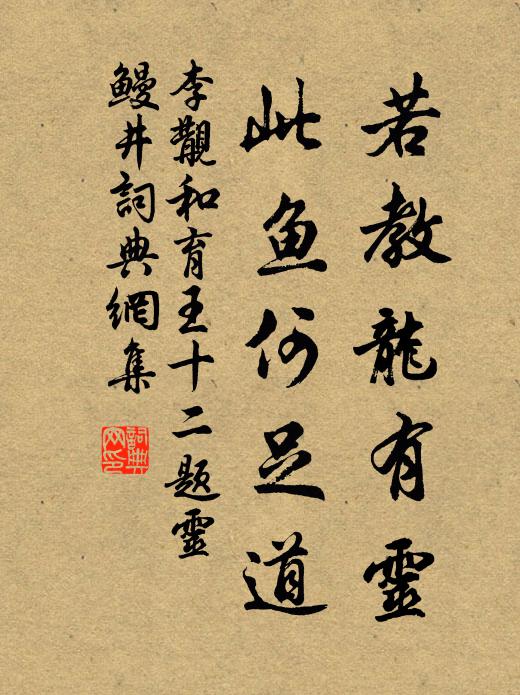 若教龍有靈
此鱼何足道
李覯和育王十二題靈
鰻井詞典網集
詞典
网印